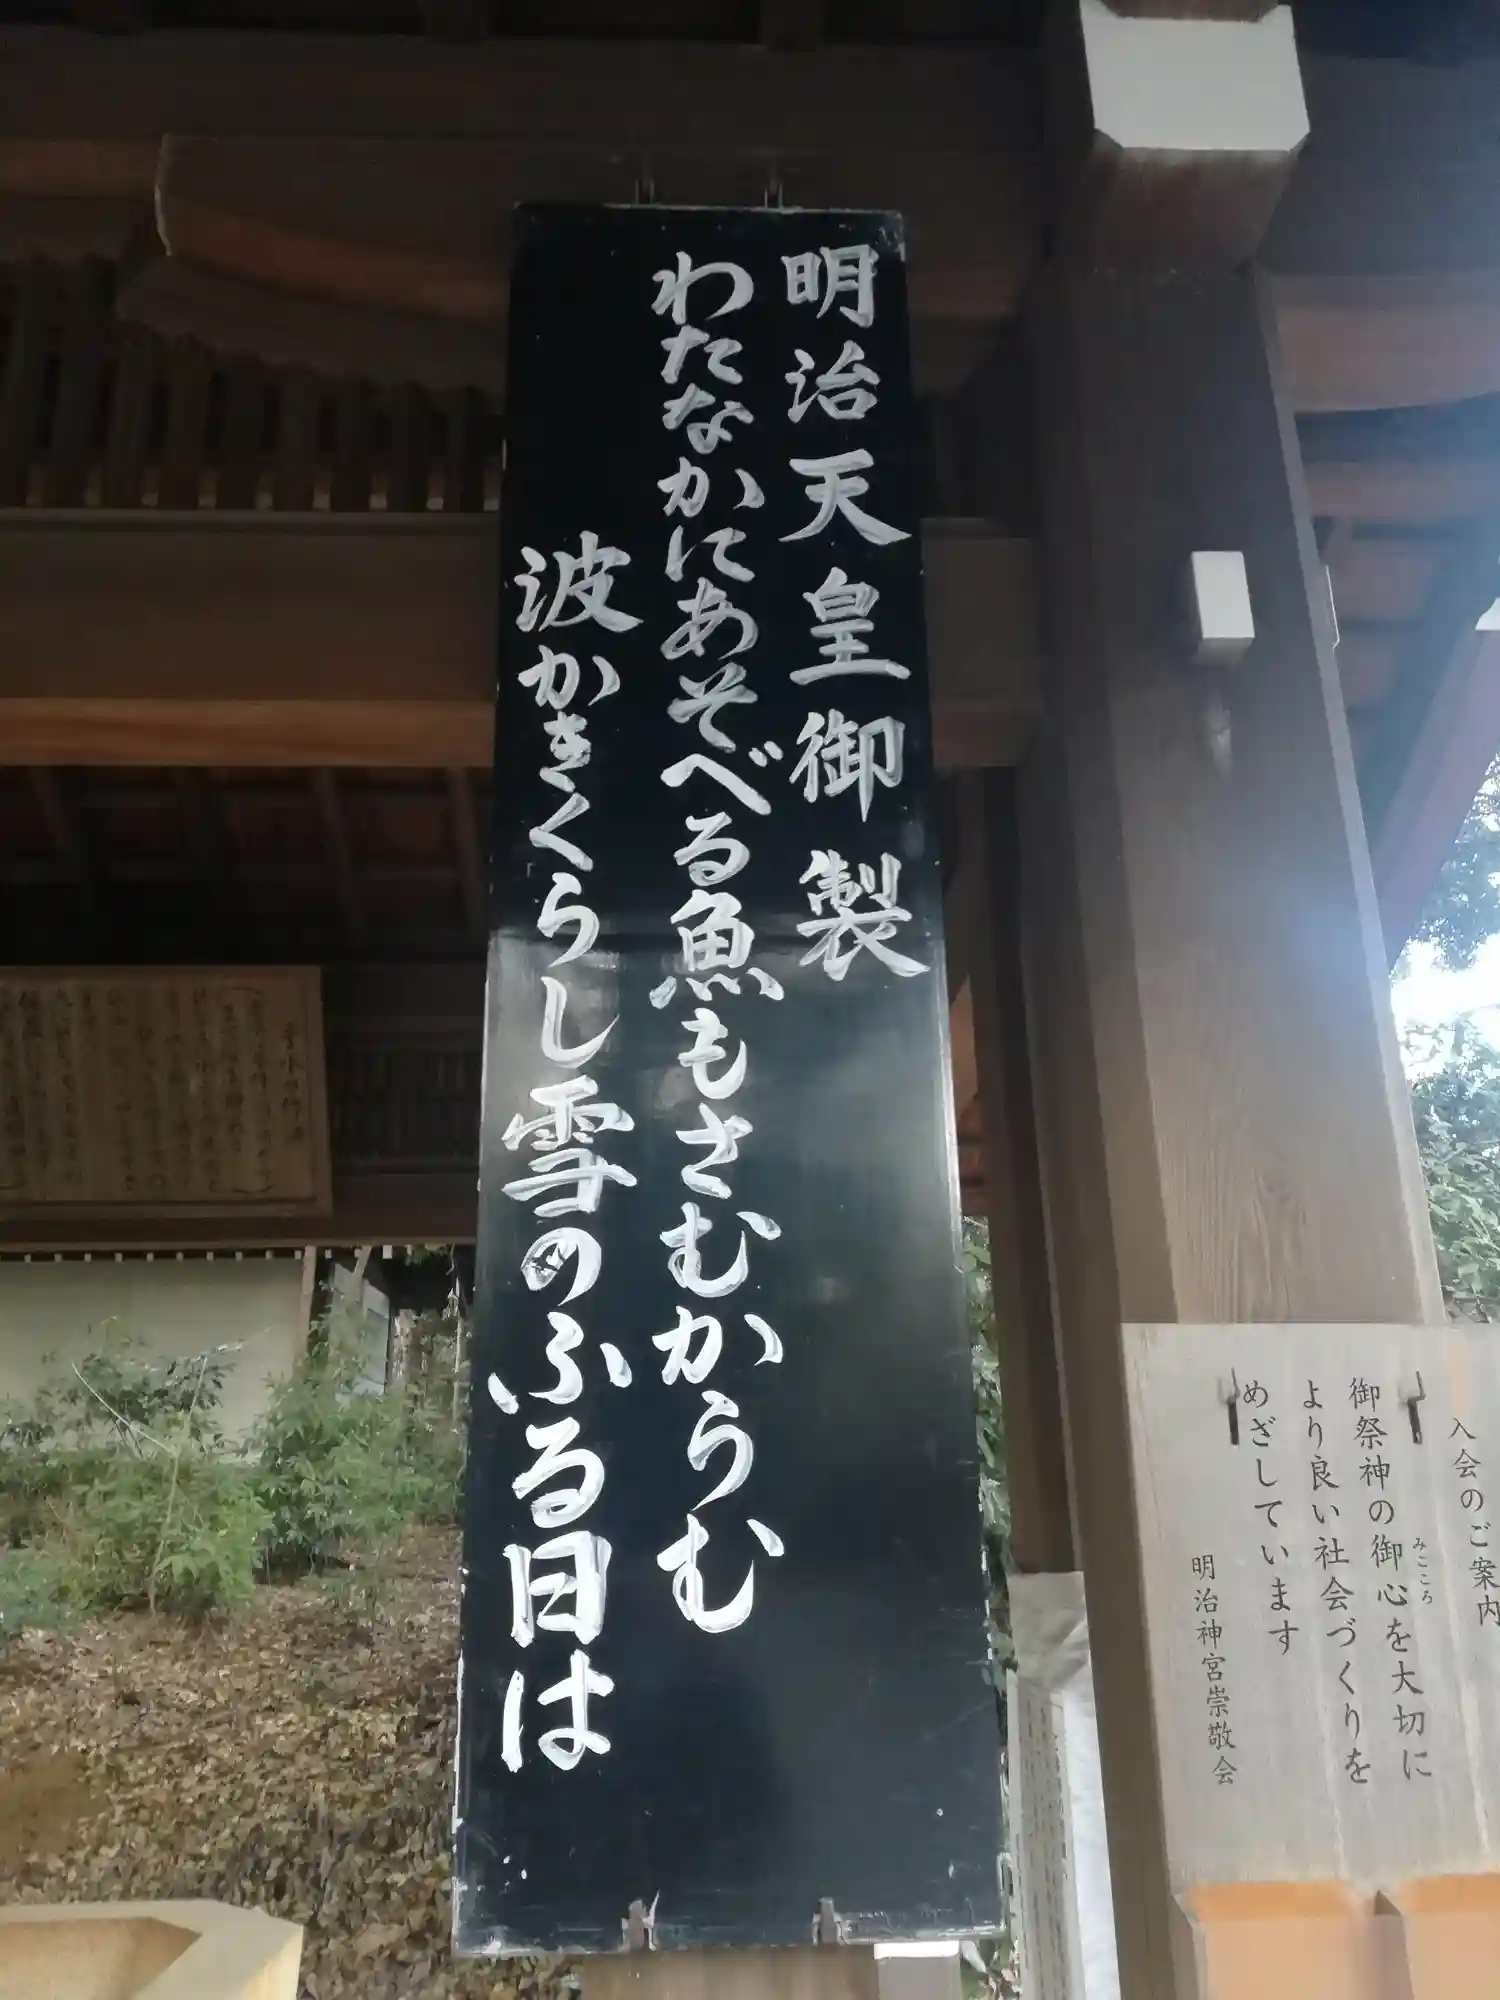 明治天皇御製
わたなかにあそべる魚もさむからむ
波かきくらし雪のふる日は
入会のご案内
御祭神の御心を大切に
みこころ
より良い社会づくりを
めざしています
明治神宮崇敬会